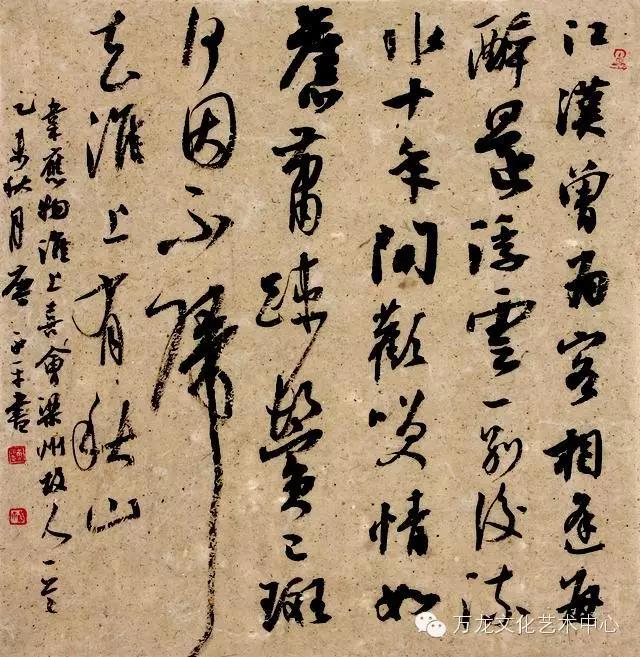 江漢曾為客相逢每
醉還浮雲一別後流
水十年間歡笑情如
舊蕭疎鬢已斑
何因不歸
去淮上有秋山
韋應物淮上喜會梁州故人一首
乙未秋月書
万龙文化艺术中心